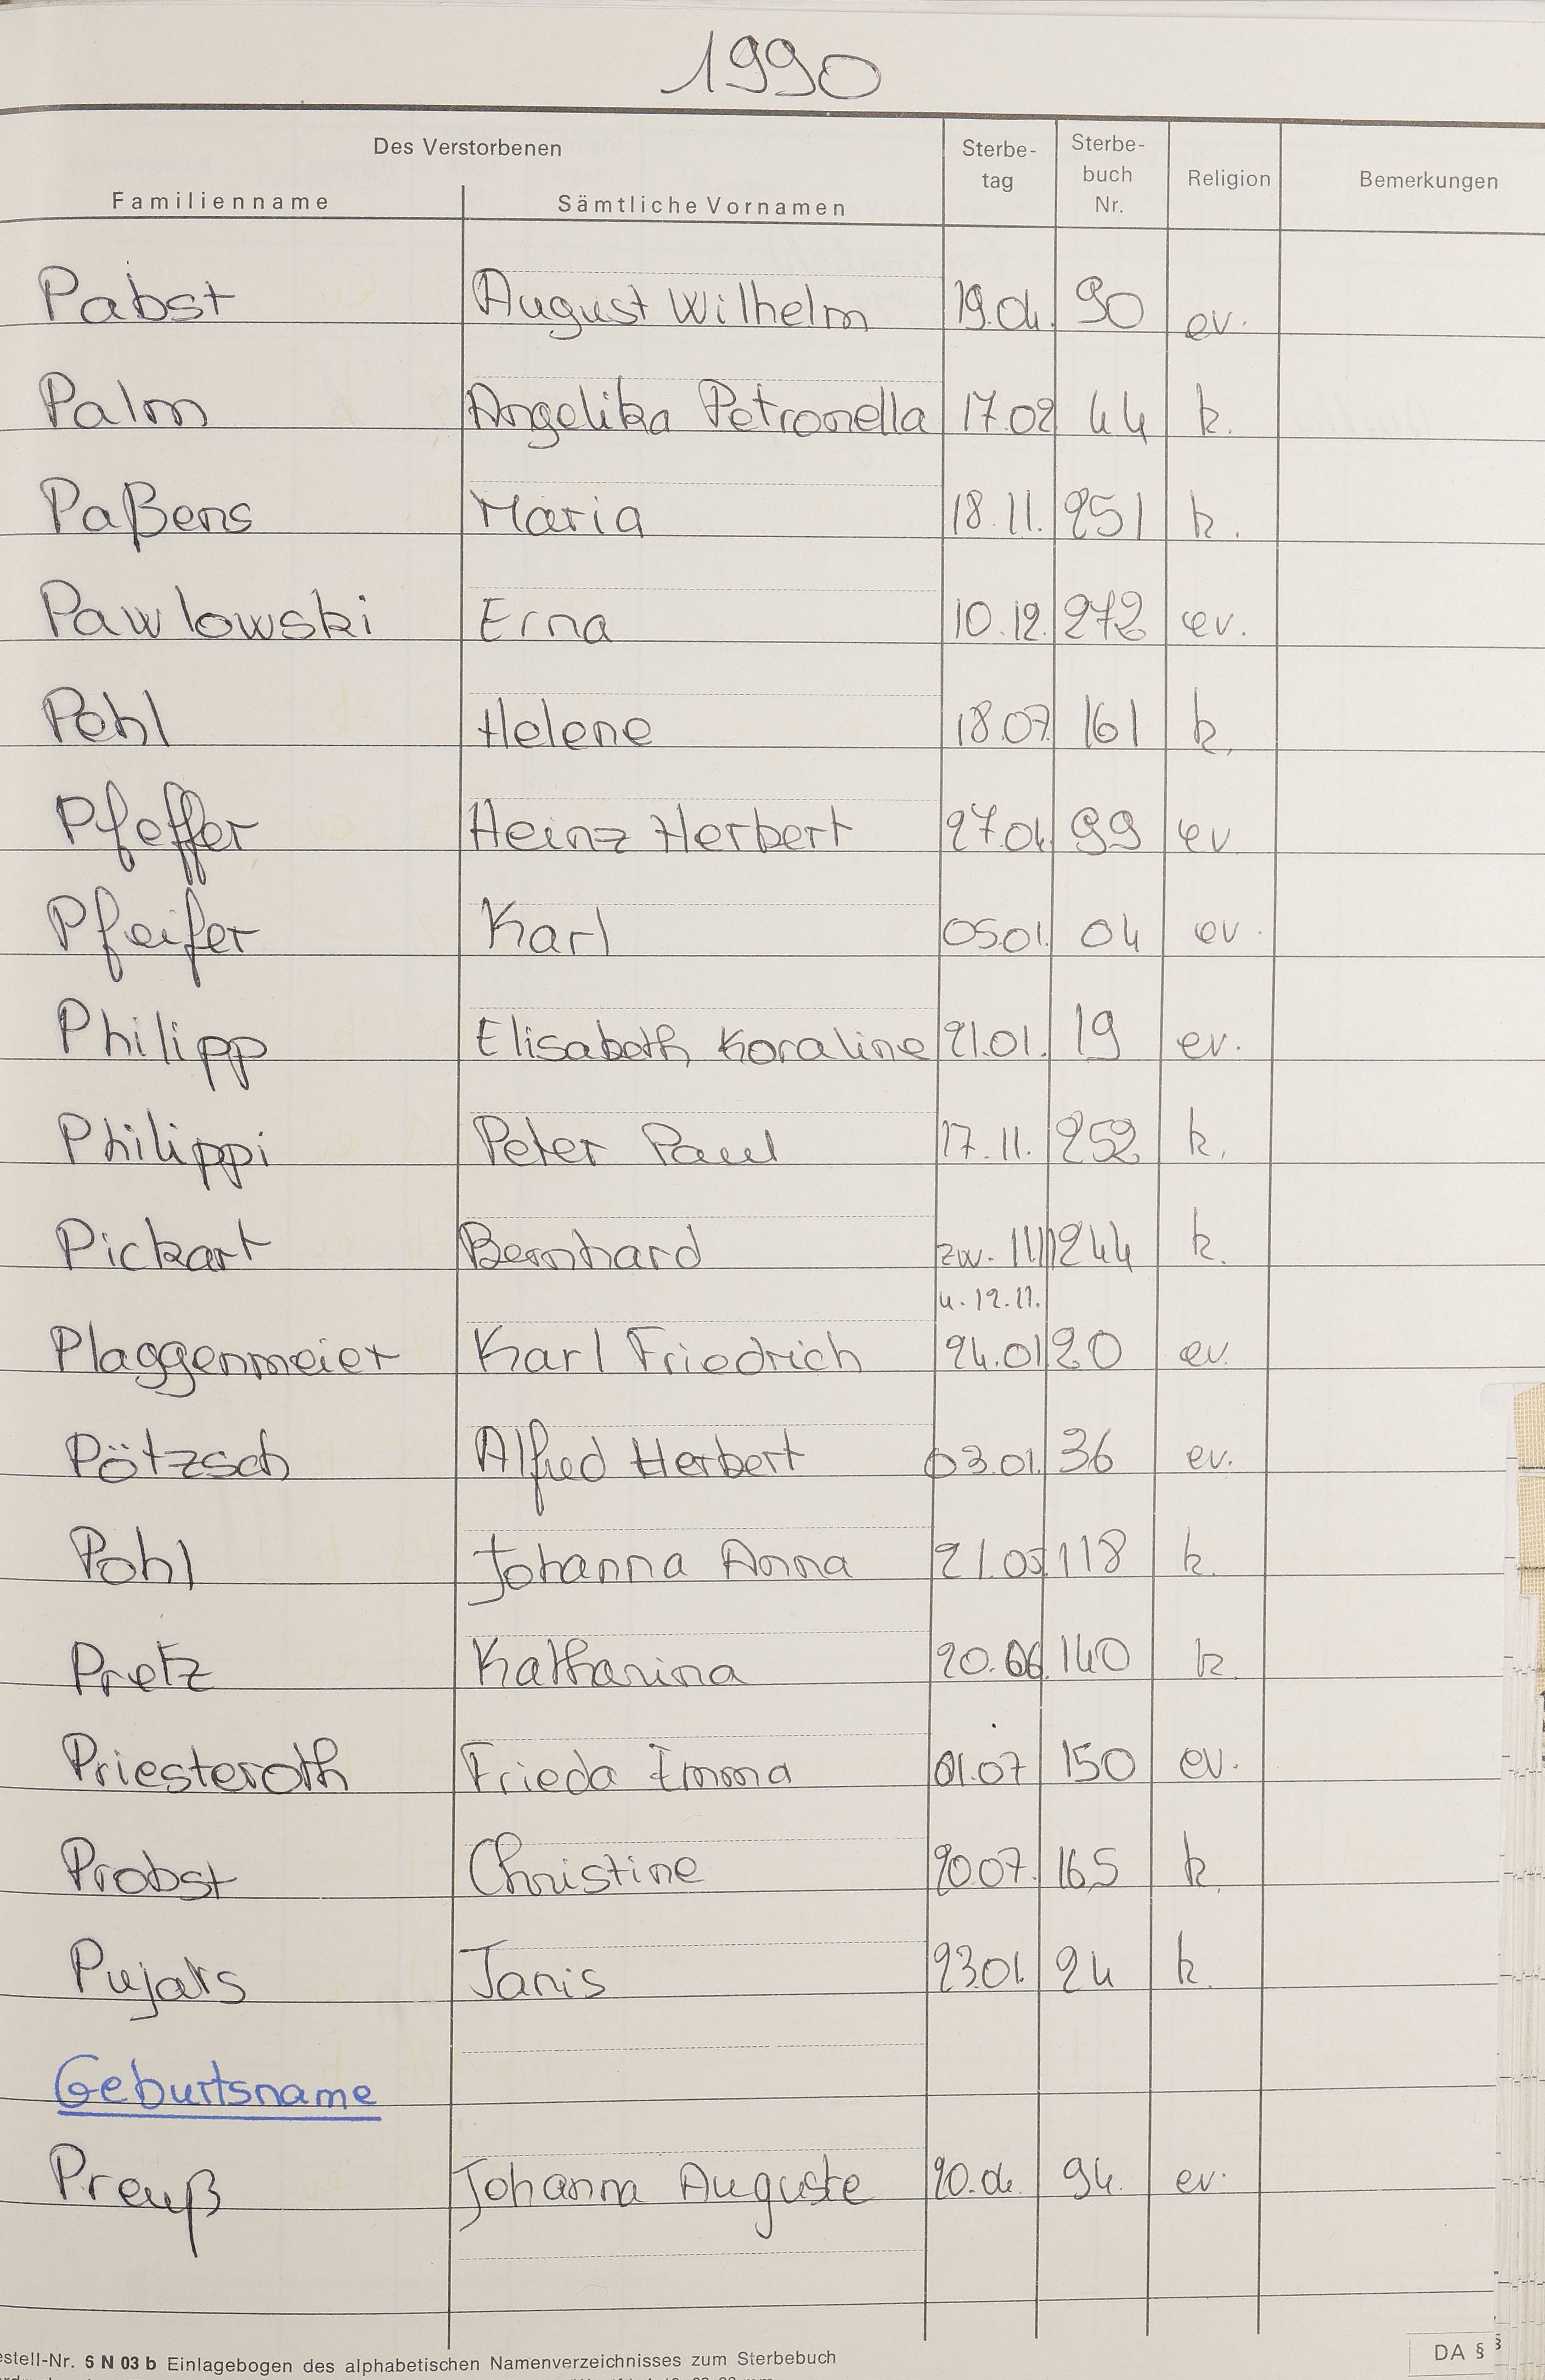 1990
Des Verstorbenen
Familienname Sämtliche Vornamen Sterbe-tag Sterbe-buch Nr. Religion Bemerkungen
Pabst August Wilhelm 19.04. 90 ev.
Palm Angelika Petronella 17.02 44 k.
Paßens Maria 18.11. 251 k.
Pawlowski Erna 10.12. 272 ev.
Pehl Helene 18.07. 161 k.
Pfeffer Heinz Herbert 27.04. 99 ev
Pfeifer Karl 05.01. 04 ev.
Philipp Elisabeth Koraline 21.01. 19 ev.
Philippi Peter Paul 17.11. 252 k.
Pickart Bernhard zw. 11.11 244 k.
u. 12.11.
Plaggenmeier Karl Friedrich 24.01 20 ev.
Pötzsch Alfred Herbert 03.01. 36 ev.
Pohl Johanna Anna 21.05. 118 k.
Pretz Katharina 20.06. 140 k.
Priesteroth Frieda Emma 01.07 150 ev.
Probst Christine 20.07. 165 k.
Pujats Janis 23.01. 24 k.
Geburtsname
Preuß Johanna Auguste 20.04. 94. ev.
estell-Nr. 5 N 03 b Einlagebogen des alphabetischen Namenverzeichnisses zum Sterbebuch
DA §